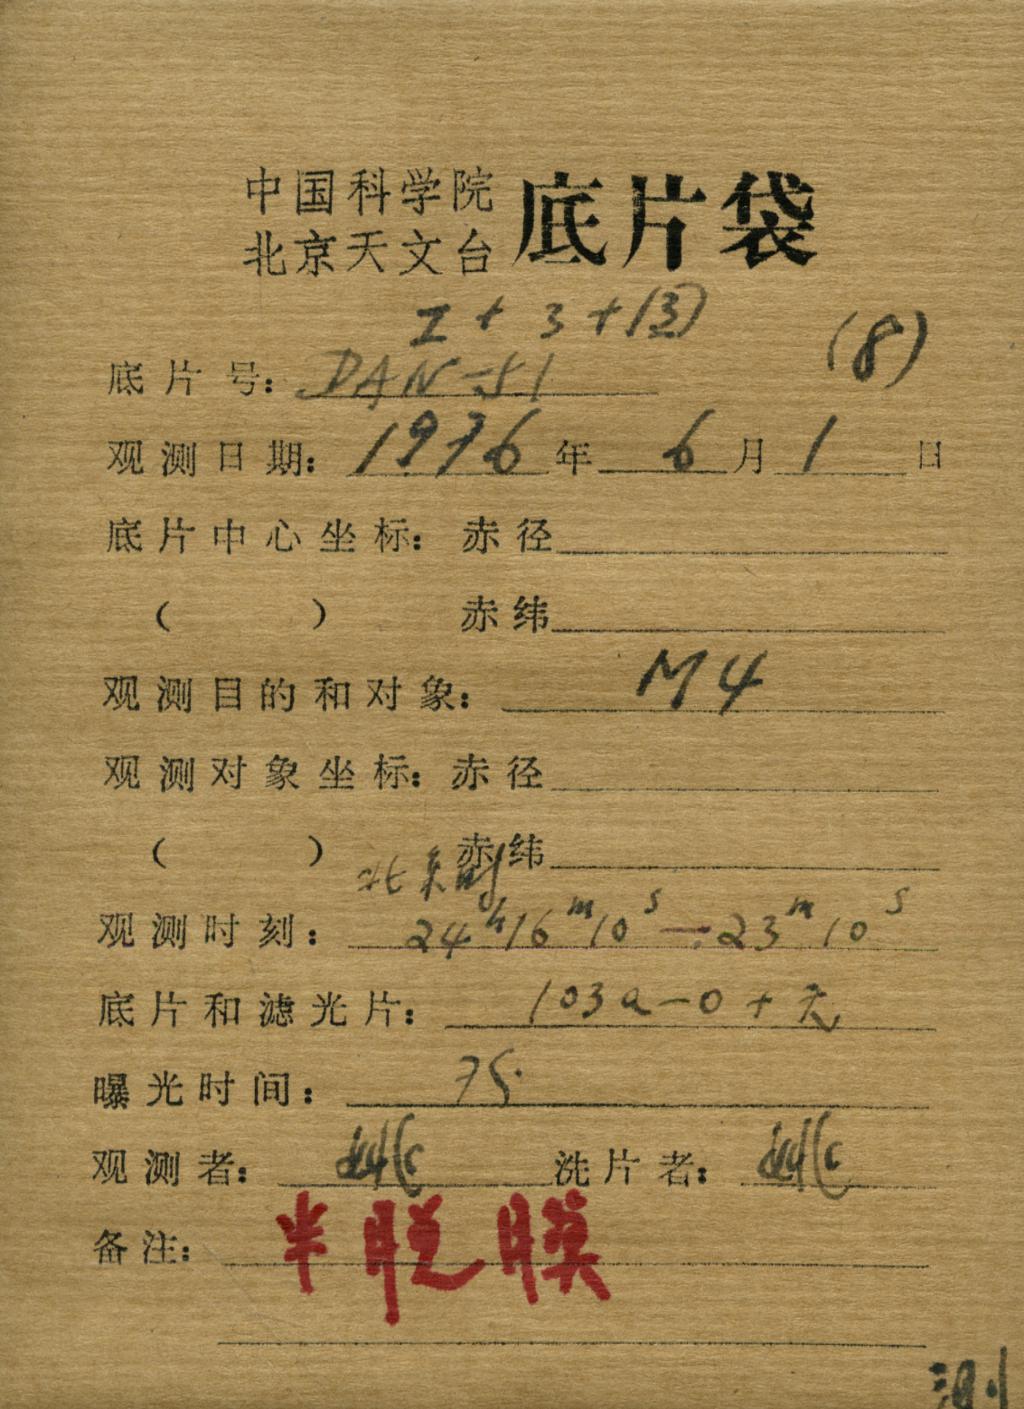 中国科学院
北京天文台 底片袋
I + 3 + (3)
(8)
底片号: DAN-51
观测日期: 1976年 6月 1日
底片中心坐标: 赤径
( ) 赤纬
观测目的和对象: M4
观测对象坐标: 赤径
( ) 赤纬
北京时
观测时刻: 24h16m10s—23m10s
底片和滤光片: 103a-O + 无
曝光时间:
观测者: 洗片者:
备注: 半脱膜
测